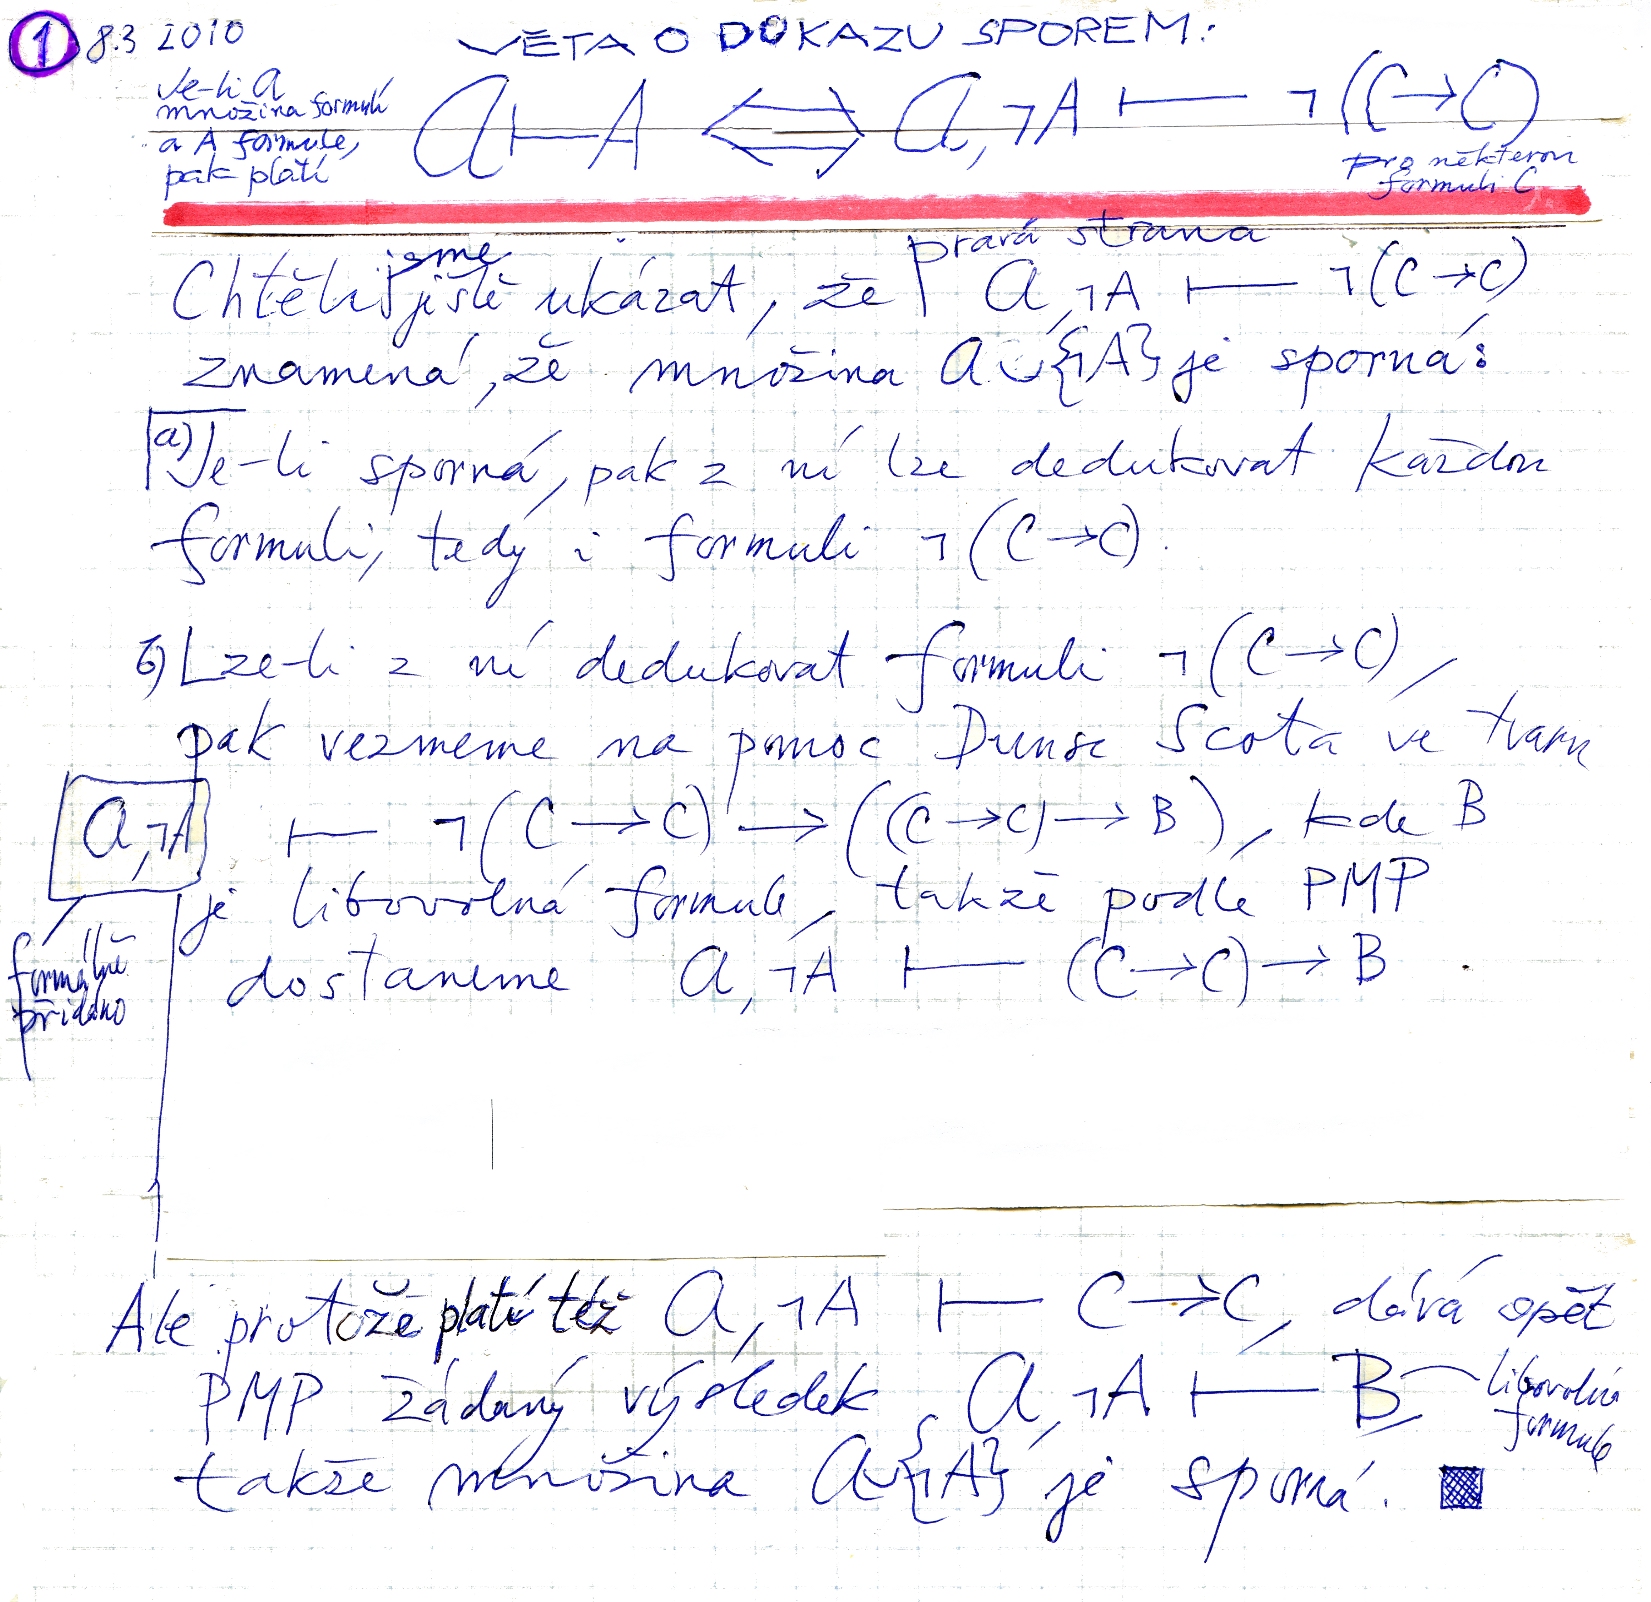 1 8.3 2010 VĚTA O DŮKAZU SPOREM:
Je-li 𝒜
množina formulí
a A formule,
pak platí
𝒜 ⊢ A ⟺ 𝒜, ¬A ⊢ ¬(C→C)
pro některou
formuli C
Chtěli jsme ještě ukázat, že pravá strana 𝒜, ¬A ⊢ ¬(C→C)
znamená, že množina 𝒜∪{¬A} je sporná:
a) Je-li sporná, pak z ní lze dedukovat každou
formuli, tedy i formuli ¬(C→C).
b) Lze-li z ní dedukovat formuli ¬(C→C),
pak vezmeme na pomoc Dunse Scota ve tvaru
𝒜, ¬A ⊢ ¬(C→C)→((C→C)→B), kde B
je libovolná formule, takže podle PMP
formálně
přidáno
dostaneme 𝒜, ¬A ⊢ (C→C)→B .
Ale protože platí též 𝒜, ¬A ⊢ C→C, dává opět
PMP žádaný výsledek 𝒜, ¬A ⊢ B libovolná
formule
takže množina 𝒜∪{¬A} je sporná.